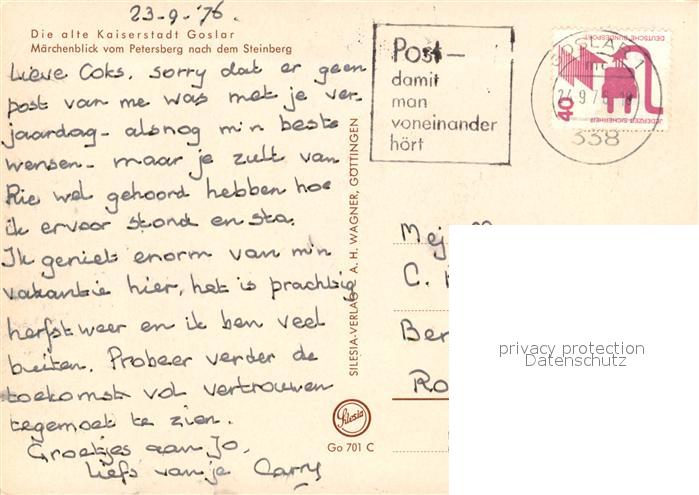 23-9-'76.
Die alte Kaiserstadt Goslar
Märchenblick vom Petersberg nach dem Steinberg
Lieve Coks, sorry dat er geen
post van me was met je ver-
jaardag - alsnog m'n beste
wensen - maar je zult van
Rie wel gehoord hebben hoe
ik ervoor stond en sta.
Ik geniet enorm van m'n
vakantie hier, het is prachtig
herfstweer en ik ben veel
buiten. Probeer verder de
toekomst vol vertrouwen
tegemoet te zien.
Groetjes aan Jo,
liefs van je Carry
SILESIA-VERLAG A. H. WAGNER, GÖTTINGEN
Silesia
Go 701 C
Post-
damit
man
voneinander
hört
GOSLAR 1
24.9.76
338
DEUTSCHE BUNDESPOST
40
JEDERZEIT SICHERHEIT
Mej
C.
Ber
Ro
privacy protection
Datenschutz